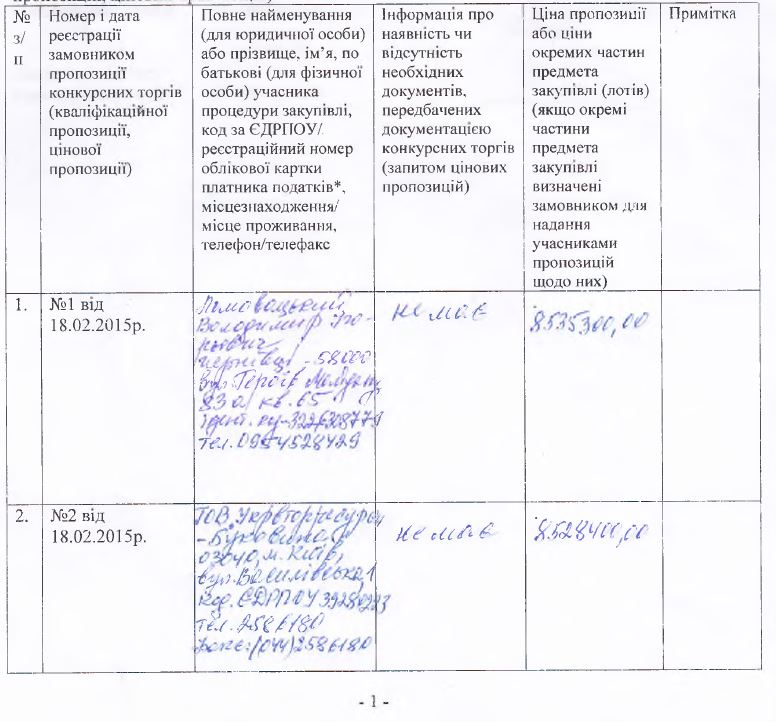 № з/п
Номер і дата
реєстрації
замовником
пропозиції
конкурсних торгів
(кваліфікаційної
пропозиції,
цінової
пропозиції)
Повне найменування
(для юридичної особи)
або прізвище, ім’я, по
батькові (для фізичної
особи) учасника
процедури закупівлі,
код за ЄДРПОУ/
реєстраційний номер
облікової картки
платника податків*,
місцезнаходження/
місце проживання,
телефон/телефакс
Інформація про
наявність чи
відсутність
необхідних
документів,
передбачених
документацією
конкурсних торгів
(запитом цінових
пропозицій)
Ціна пропозиції
або ціни
окремих частин
предмета
закупівлі (лотів)
(якщо окремі
частини
предмета
закупівлі
визначені
замовником для
надання
учасниками
пропозицій
щодо них)
Примітка
1.
№1 від
18.02.2015р.
Володимир Іго-
рьович
Чернівці, 58000
вул. Героїв Майдану
83а/ кв. 65
ідент.
тел. 0954528429
немає
8535300,00
2.
№2 від
18.02.2015р.
ТОВ
-Буковина"
03040, м. Київ,
вул. Василівська, 1
код. ЄДРПОУ 39280223
тел. 2586180
факс: (044)2586180
немає
8528400,00
- 1 -